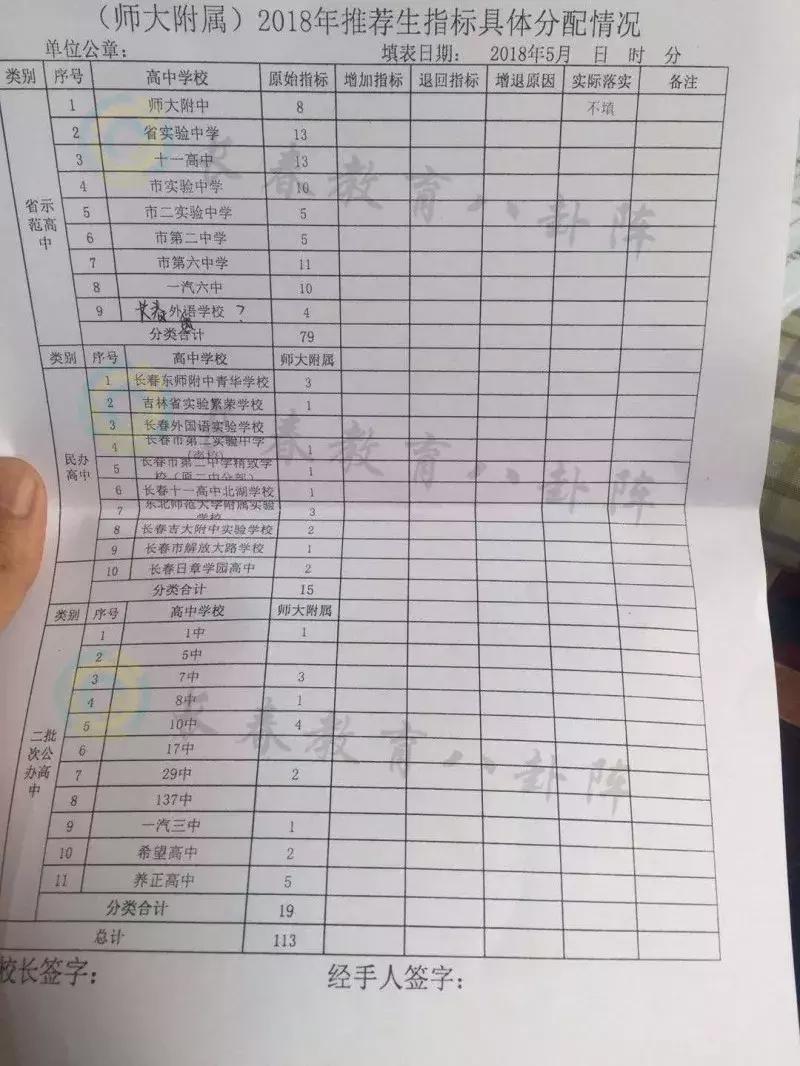 （师大附属）2018年推荐生指标具体分配情况
单位公章： 填表日期： 2018年5月 日 时 分
类别 序号 高中学校 原始指标 增加指标 退回指标 增退原因 实际落实 备注
省示范高中
1 师大附中 8 不填
2 省实验中学 13
3 十一高中 13
4 市实验中学 10
5 市二实验中学 5
6 市第二中学 5
7 市第六中学 11
8 一汽六中 10
9 长春 外语学校 ? 4
分类合计 79
类别 序号 高中学校 师大附属
民办高中
1 长春东师附中青华学校 3
2 吉林省实验繁荣学校 1
3 长春外国语实验学校
4 长春市第二实验中学 1
5 长春市第二中学精致学校（原二中分部） 1
6 长春十一高中北湖学校 1
7 东北师范大学附属实验学校 3
8 长春吉大附中实验学校 2
9 长春市解放大路学校 1
10 长春日章学园高中 2
分类合计 15
类别 序号 高中学校 师大附属
二批次公办高中
1 1中 1
2 5中
3 7中 3
4 8中 1
5 10中 4
6 17中
7 29中 2
8 137中
9 一汽三中 1
10 希望高中 2
11 养正高中 5
分类合计 19
总计 113
校长签字： 经手人签字：
长春教育八卦阵
长春教育八卦阵
长春教育八卦阵